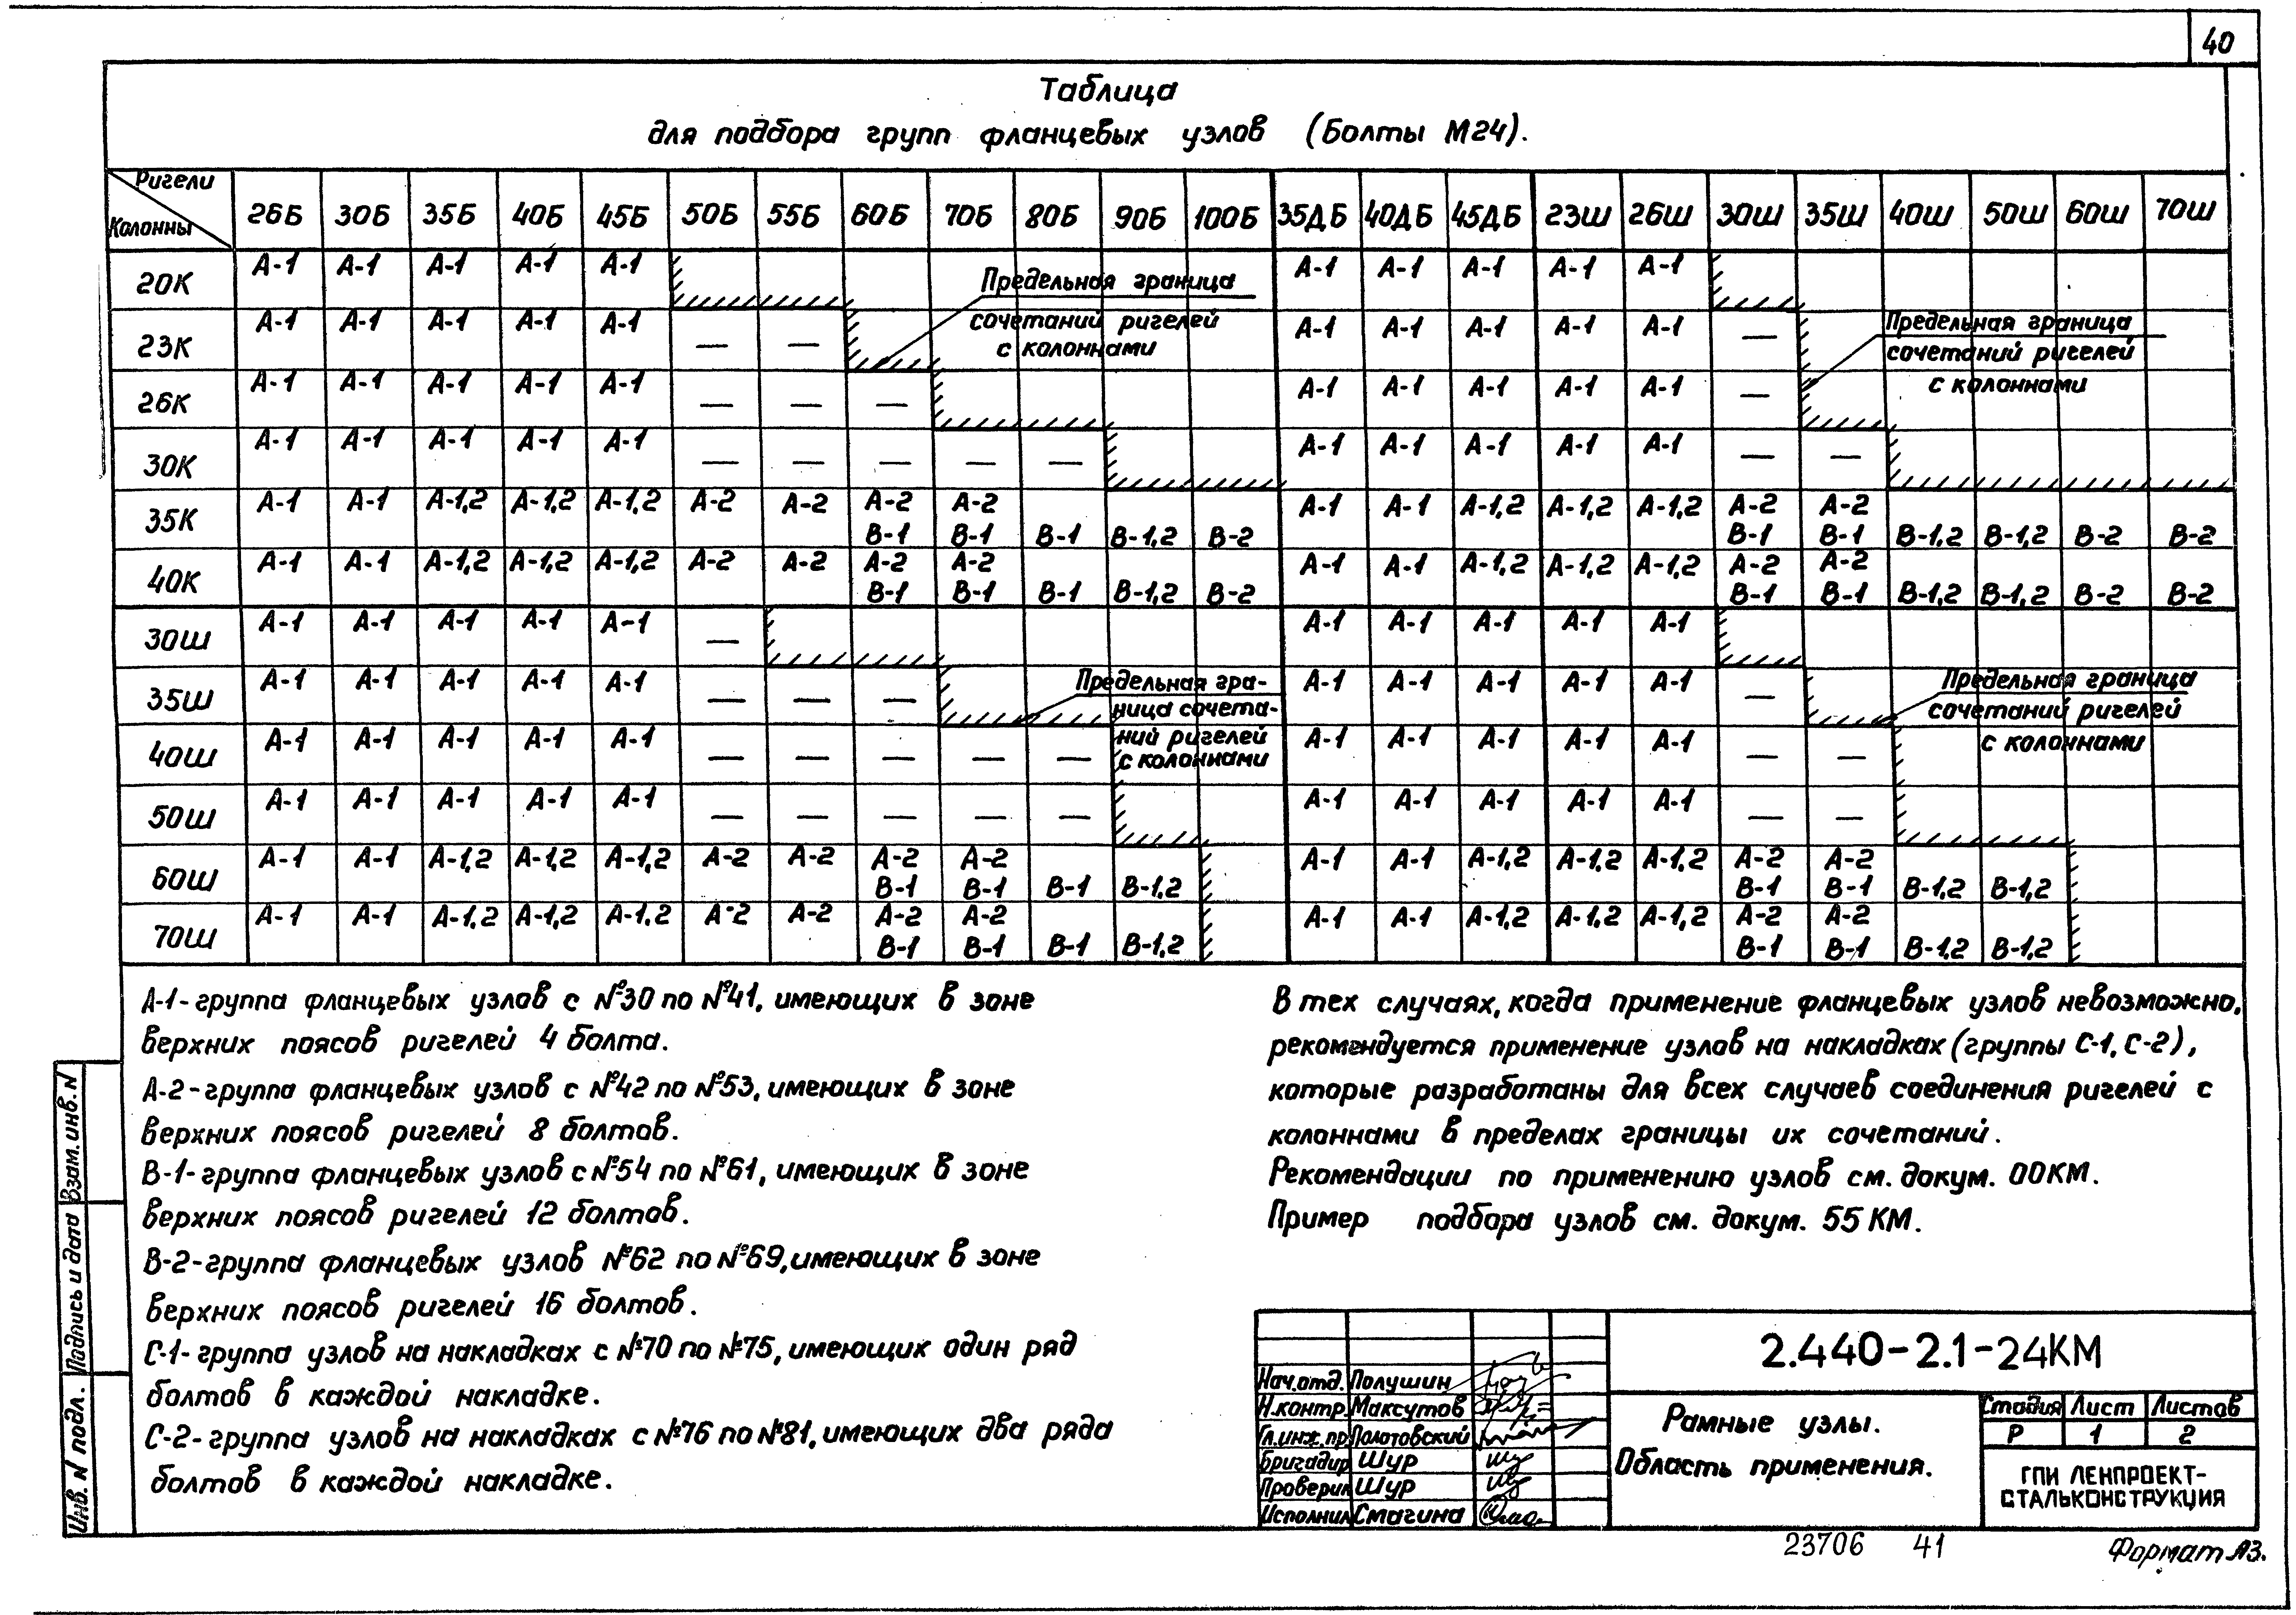 40
Таблица
для подбора групп фланцевых узлов (Болты М24).
Ригели
Колонны
26Б 30Б 35Б 40Б 45Б 50Б 55Б 60Б 70Б 80Б 90Б 100Б 35ДБ 40ДБ 45ДБ 23Ш 26Ш 30Ш 35Ш 40Ш 50Ш 60Ш 70Ш
20К А-1 А-1 А-1 А-1 А-1 А-1 А-1 А-1 А-1 А-1
Предельная граница
сочетаний ригелей
с колоннами
23К А-1 А-1 А-1 А-1 А-1 — — А-1 А-1 А-1 А-1 А-1 —
Предельная граница
сочетаний ригелей
с колоннами
26К А-1 А-1 А-1 А-1 А-1 — — — А-1 А-1 А-1 А-1 А-1 —
30К А-1 А-1 А-1 А-1 А-1 — — — — — А-1 А-1 А-1 А-1 А-1 — —
35К А-1 А-1 А-1,2 А-1,2 А-1,2 А-2 А-2 А-2 А-2 А-1 А-1 А-1,2 А-1,2 А-1,2 А-2 А-2
В-1 В-1 В-1 В-1,2 В-2 В-1 В-1 В-1,2 В-1,2 В-2 В-2
40К А-1 А-1 А-1,2 А-1,2 А-1,2 А-2 А-2 А-2 А-2 А-1 А-1 А-1,2 А-1,2 А-1,2 А-2 А-2
В-1 В-1 В-1 В-1,2 В-2 В-1 В-1 В-1,2 В-1,2 В-2 В-2
30Ш А-1 А-1 А-1 А-1 А-1 — А-1 А-1 А-1 А-1 А-1
35Ш А-1 А-1 А-1 А-1 А-1 — — — А-1 А-1 А-1 А-1 А-1 —
Предельная гра-
ница сочета-
ний ригелей
с колоннами
Предельная граница
сочетаний ригелей
с колоннами
40Ш А-1 А-1 А-1 А-1 А-1 — — — — — А-1 А-1 А-1 А-1 А-1 — —
50Ш А-1 А-1 А-1 А-1 А-1 — — — — — А-1 А-1 А-1 А-1 А-1 — —
60Ш А-1 А-1 А-1,2 А-1,2 А-1,2 А-2 А-2 А-2 А-2 А-1 А-1 А-1,2 А-1,2 А-1,2 А-2 А-2
В-1 В-1 В-1 В-1,2 В-1 В-1 В-1,2 В-1,2
70Ш А-1 А-1 А-1,2 А-1,2 А-1,2 А-2 А-2 А-2 А-2 А-1 А-1 А-1,2 А-1,2 А-1,2 А-2 А-2
В-1 В-1 В-1 В-1,2 В-1 В-1 В-1,2 В-1,2
А-1-группа фланцевых узлов с №30 по №41, имеющих в зоне
верхних поясов ригелей 4 болта.
А-2-группа фланцевых узлов с №42 по №53, имеющих в зоне
верхних поясов ригелей 8 болтов.
В-1-группа фланцевых узлов с №54 по №61, имеющих в зоне
верхних поясов ригелей 12 болтов.
В-2-группа фланцевых узлов №62 по №69, имеющих в зоне
верхних поясов ригелей 16 болтов.
С-1-группа узлов на накладках с №70 по №75, имеющих один ряд
болтов в каждой накладке.
С-2-группа узлов на накладках с №76 по №81, имеющих два ряда
болтов в каждой накладке.
В тех случаях, когда применение фланцевых узлов невозможно,
рекомендуется применение узлов на накладках (группы С-1, С-2),
которые разработаны для всех случаев соединения ригелей с
колоннами в пределах границы их сочетаний.
Рекомендации по применению узлов см. докум. 00КМ.
Пример подбора узлов см. докум. 55 КМ.
Взам. инв. N
Подпись и дата
Инв. N подл.
Нач.отд. Полушин
Н.контр. Максутов
Гл.инж.пр. Полотовский
Бригадир Шур
Проверил Шур
Исполнил Смагина
2.440-2.1-24КМ
Рамные узлы.
Область применения.
Стадия Лист Листов
Р 1 2
ГПИ ЛЕНПРОЕКТ-
СТАЛЬКОНСТРУКЦИЯ
23706 41
Формат А3.